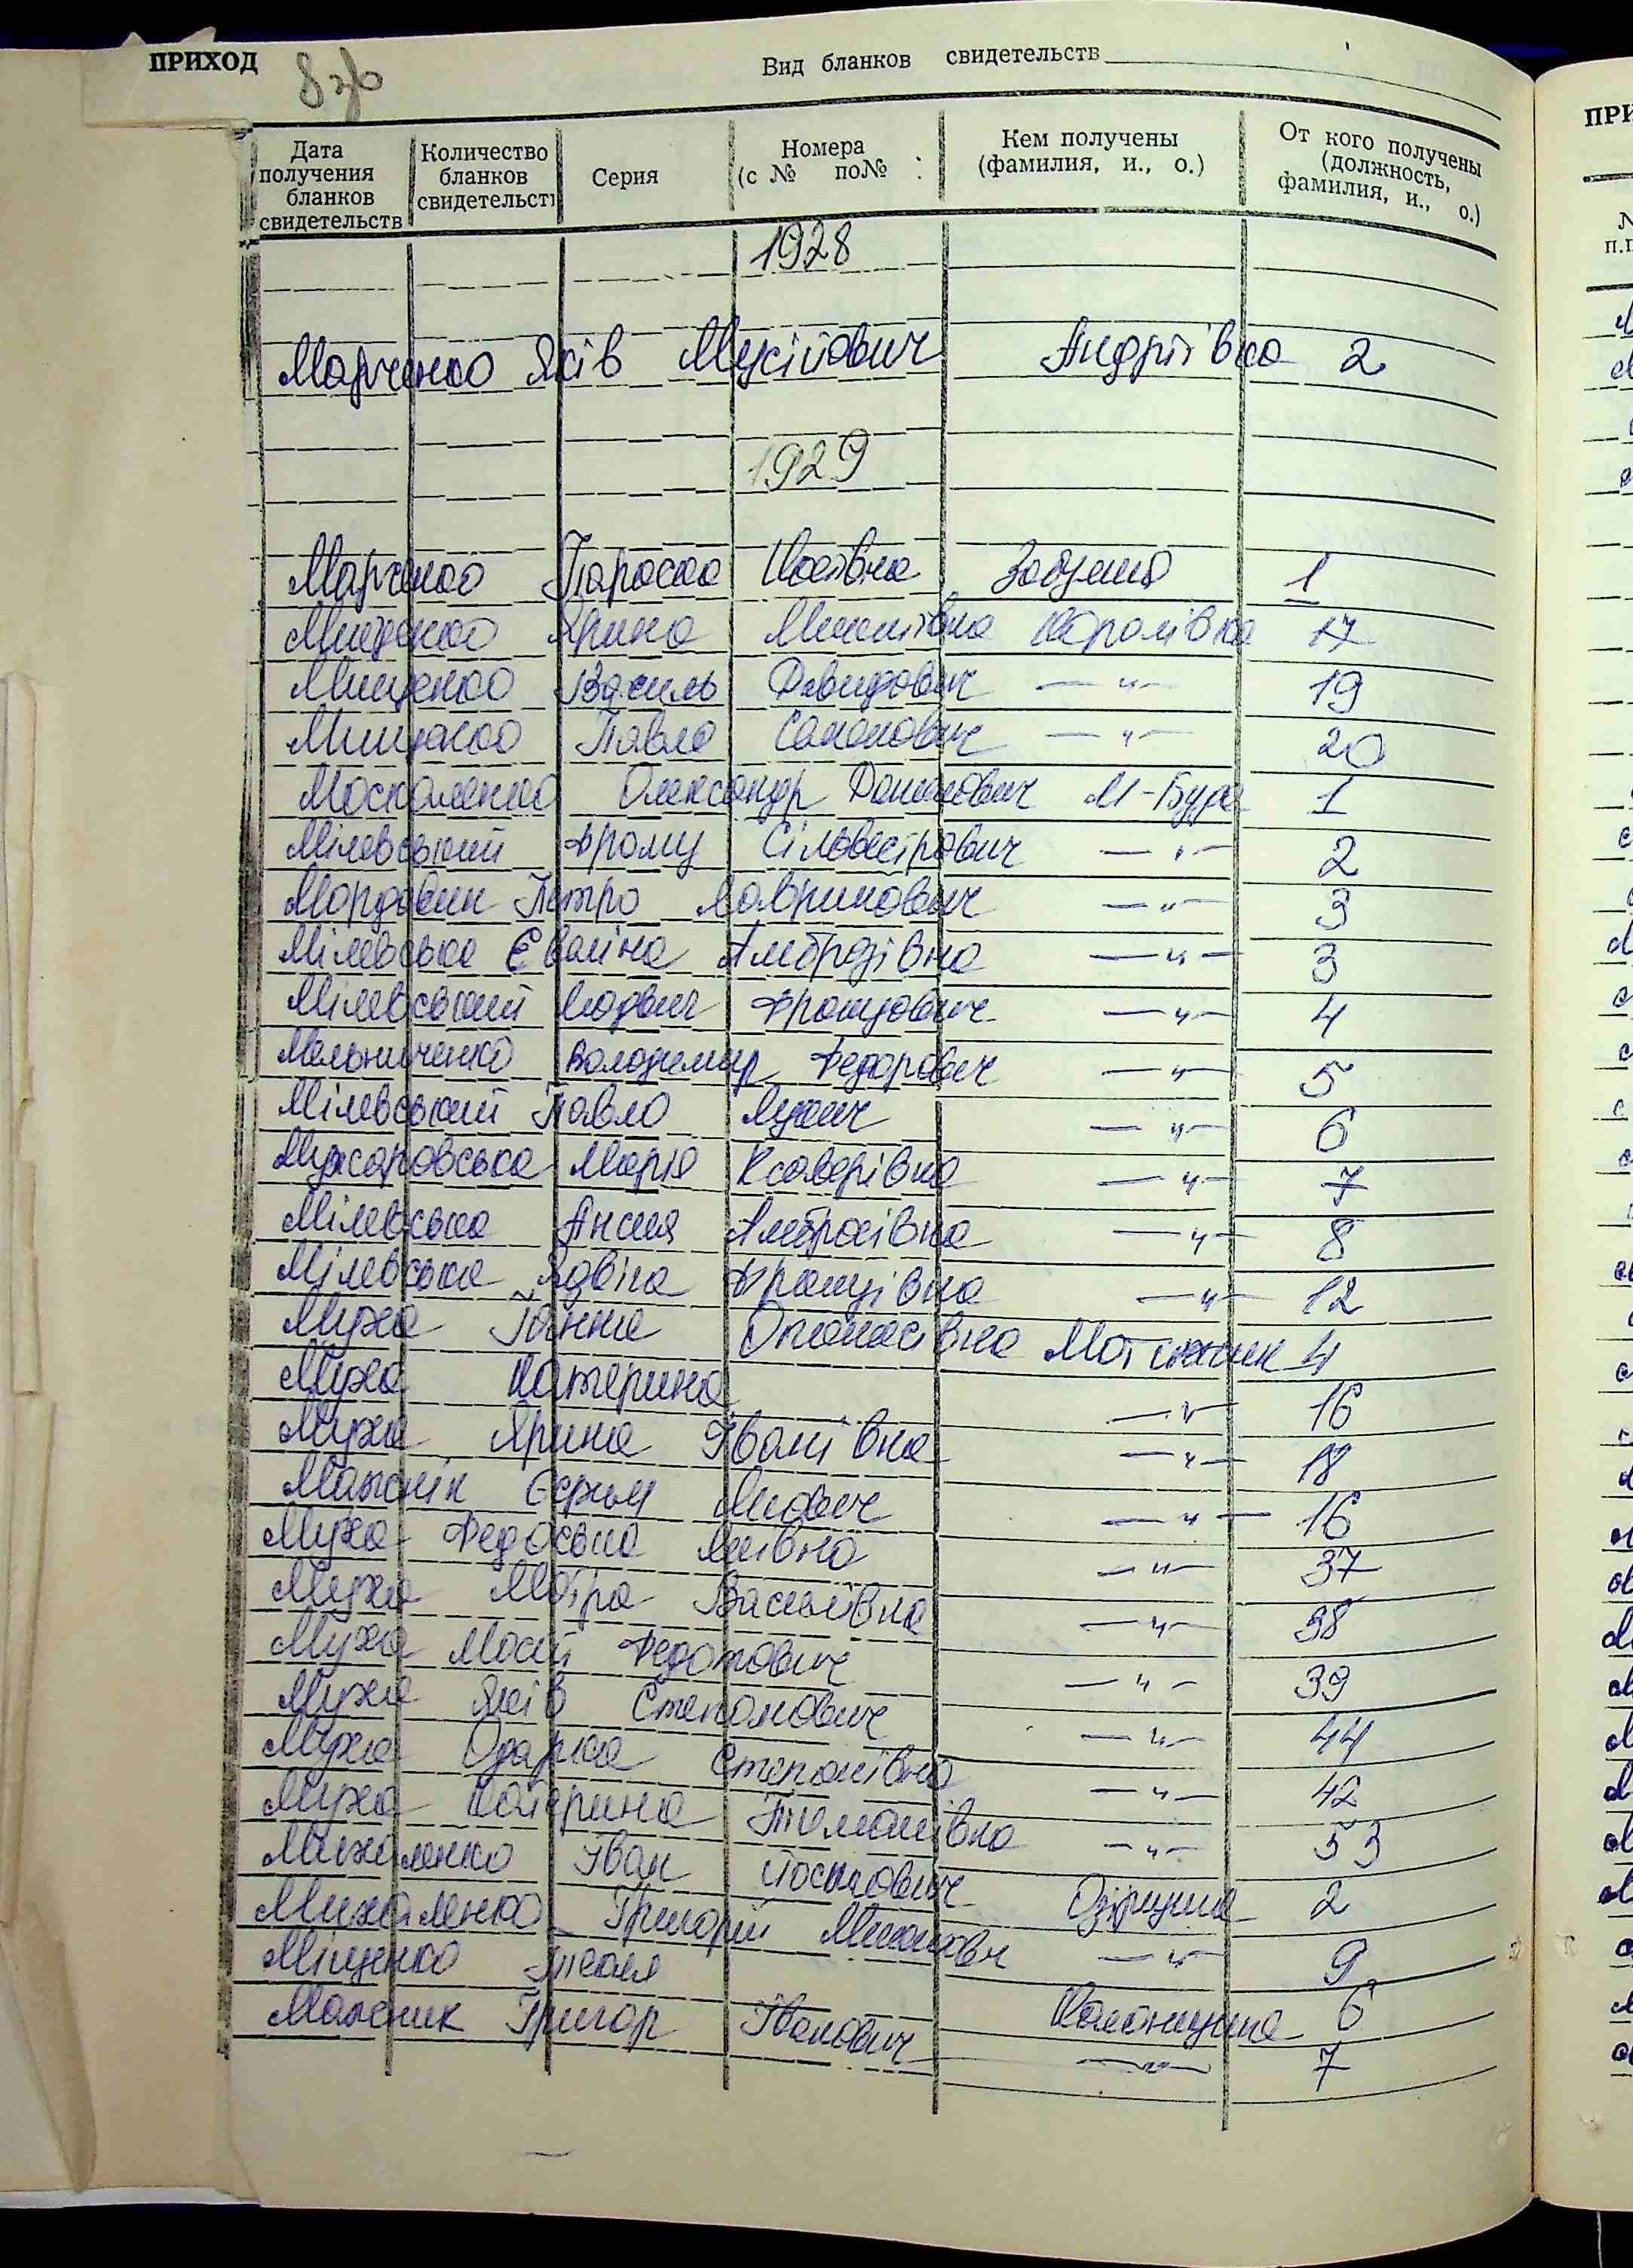 ПРИХОД
8 зв
Вид бланков свидетельств
Дата получения бланков свидетельств
Количество бланков свидетельств
Серия
Номера (с № по№ :
Кем получены (фамилия, и., о.)
От кого получены (должность, фамилия, и., о.)
1928
Марченко Яків Мусійович Андріївка 2
1929
Марченко Параска Забуяння 1
Мищенко Ярина Микитівна Королівка 17
Мищенко Василь Давидович —"— 19
Мищенко Павло Самонович —"— 20
Москаленко Олександр М-Буда 1
Мілевський Францу Сільвестрович —"— 2
Мордовин Петро Лаврикович —"— 3
Мілевська Євеліна Амброзівна —"— 3
Мілевський Людвиг Францович —"— 4
Мельниченко Володимир Федорович —"— 5
Мілевський Павло Луцич —"— 6
Мужаровська Марія Ксаверівна —"— 7
Мілевська Анеля Амброзівна —"— 8
Мілевська Ядвіга Францівна —"— 12
Муха Ганна Опанасівна Мотижин 4
Муха Катерина —"— 16
Муха Ярина Іванівна —"— 18
Мажснік Єфрем —"— 16
Муха Федоська Яківна —"— 37
Муха Мотря Василівна —"— 38
Муха Мосій Федотович —"— 39
Муха Яків Степанович —"— 44
Муха Одарка Степанівна —"— 42
Муха Катерина Томашівна —"— 53
Михаленко Іван Йосипович Озірщина 2
Михаленко Григорій Миколович —"— 9
Міщенко Колонщина 6
Мажсник Григор Іванович —"— 7
ПРИ
№
п.п